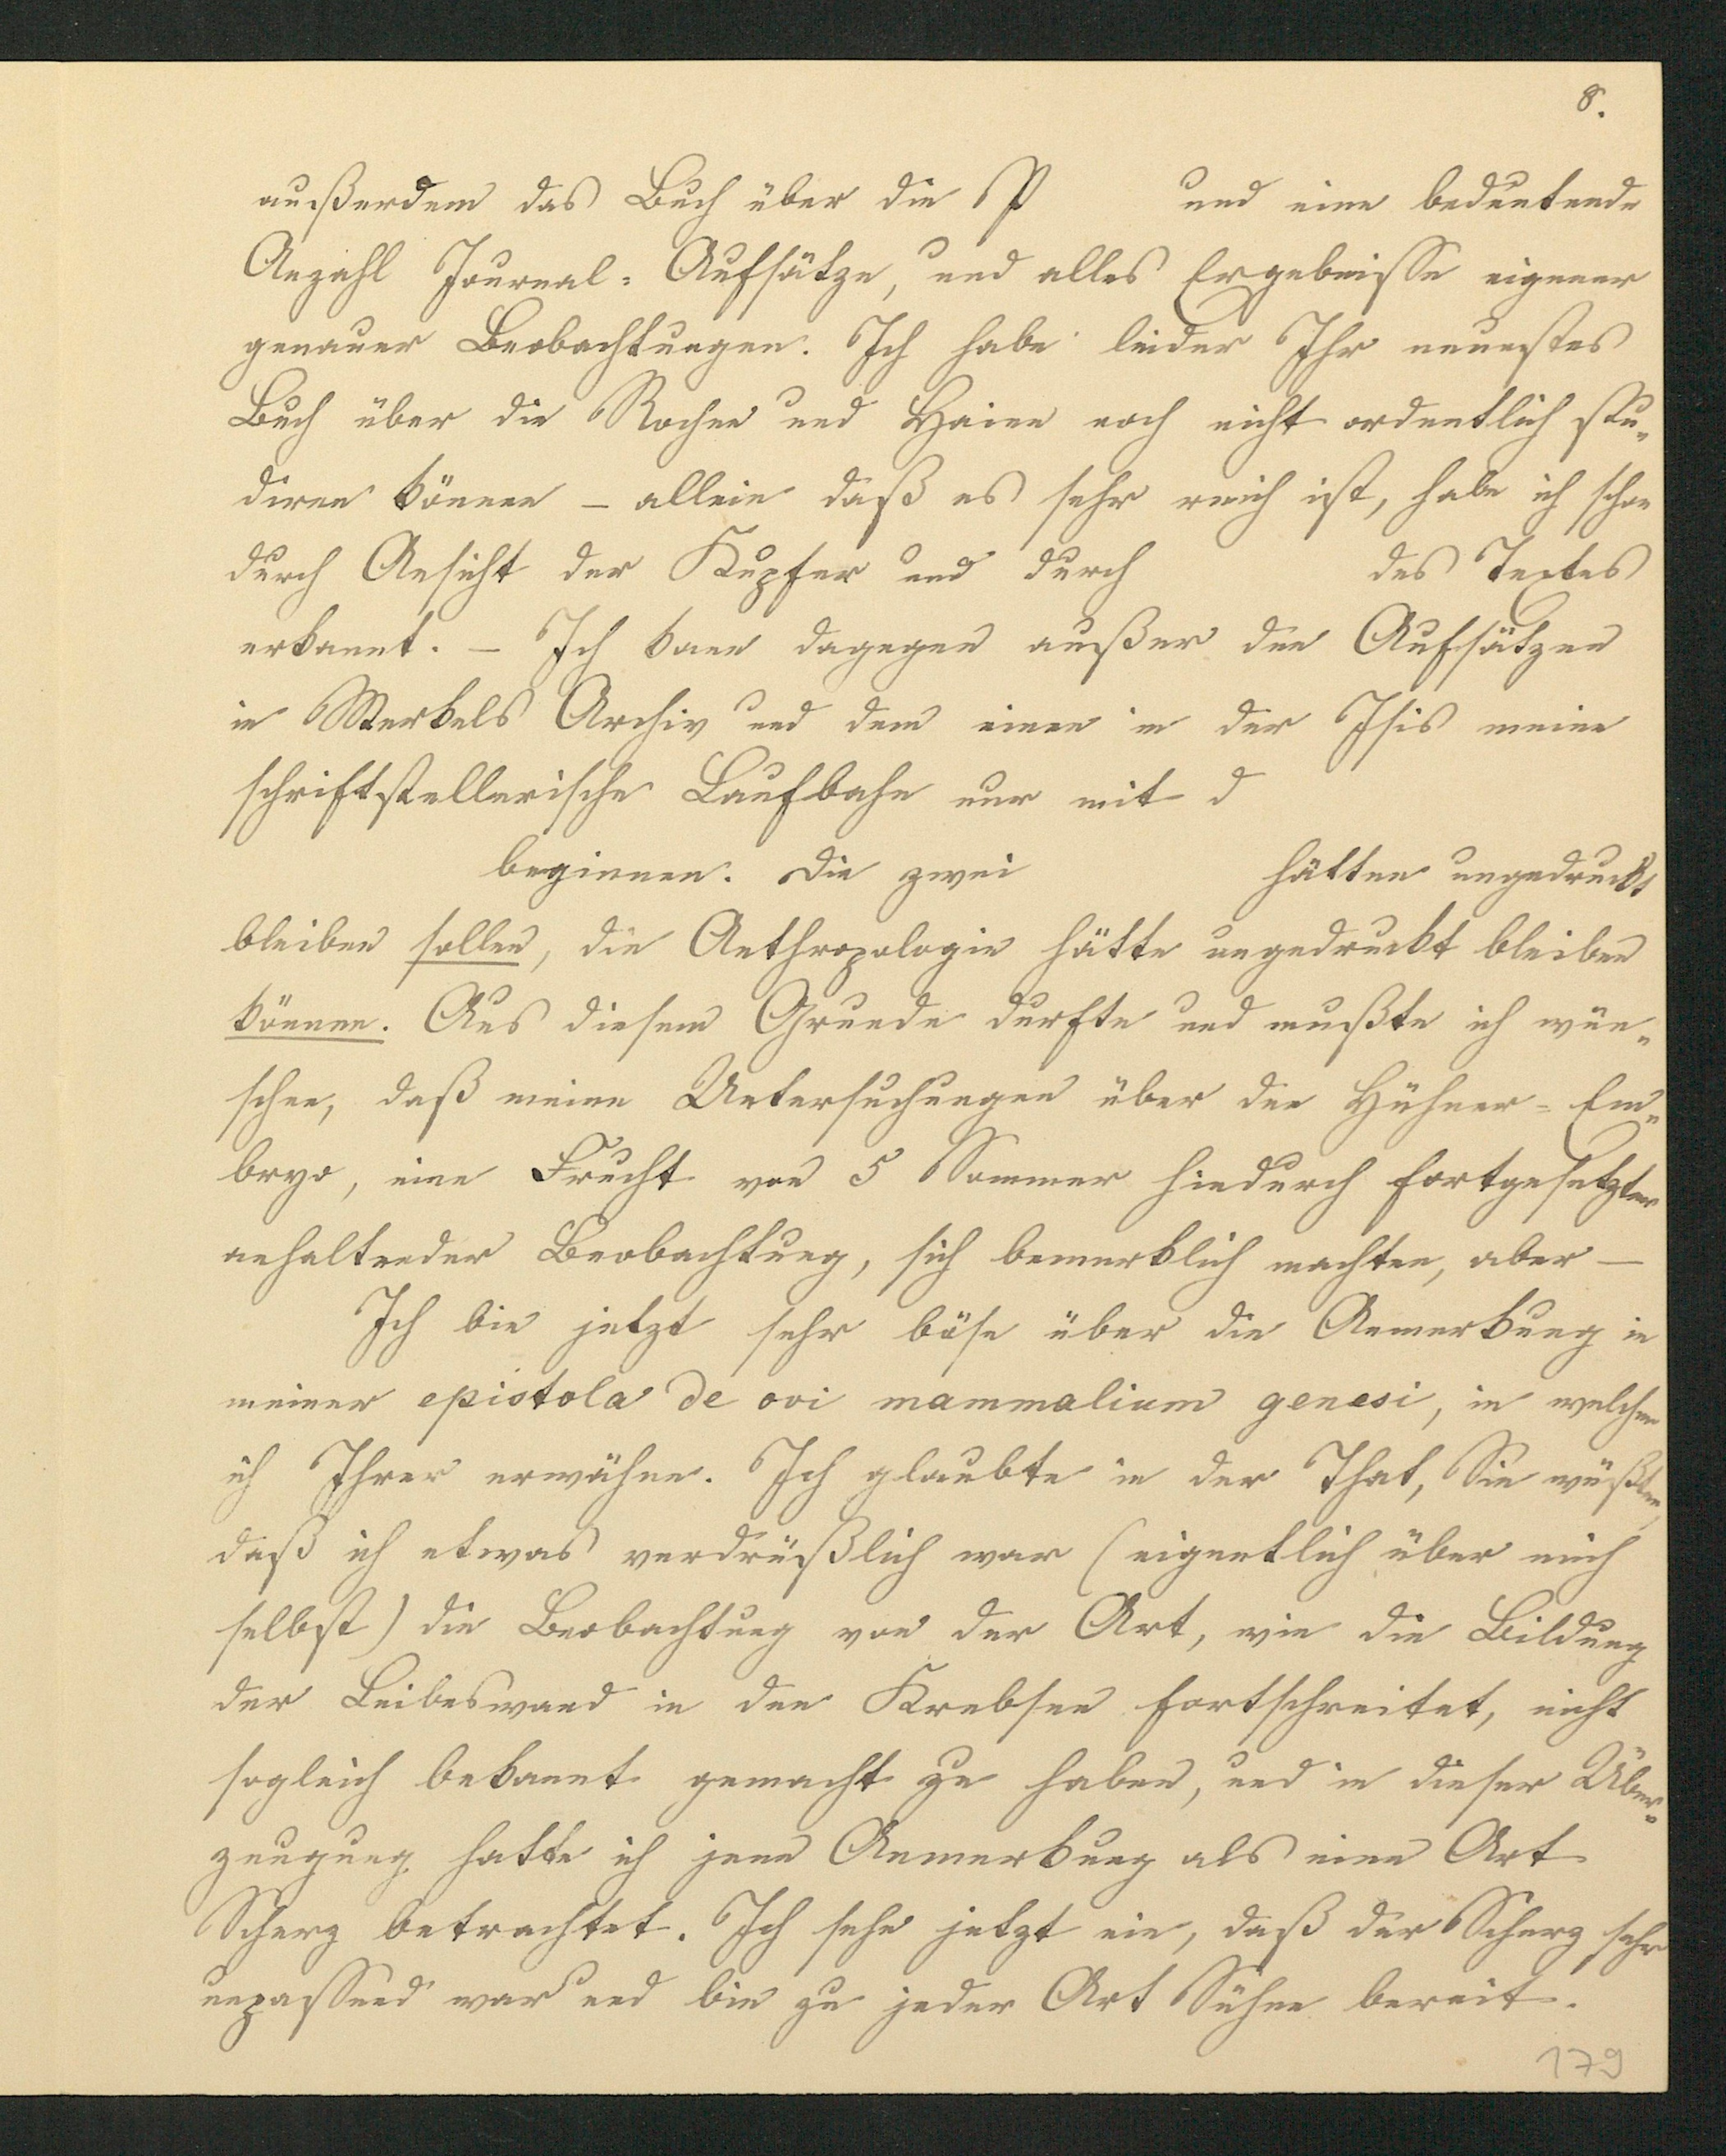 8.
außerdem das Buch über die P und eine bedeutende
Anzahl Journal-Aufsätze, und alles Ergebnisse eigener
genauer Beobachtungen. Ich habe leider Ihr neuestes
Buch über die Rochen und Haien noch nicht ordentlich stu-
diren können – allein daß es sehr reich ist, habe ich schon
durch Ansicht der Kupfer und durch des Textes
erkannt. – Ich kann dagegen außer den Aufsätzen
in Merkels Archiv und dem einen in der Isis meine
schriftstellerische Laufbahn nur mit d
beginnen. Die zwei hätten ungedruckt
bleiben sollen, die Anthropologie hätte ungedruckt bleiben
können. Aus diesem Grunde durfte und mußte ich wün-
schen, daß meine Untersuchungen über den Hühner-Em-
bryo, eine Frucht von 5 Sommer hiedurch fortgesetzter
anhaltender Beobachtung, sich bemerklich machten, aber –
Ich bin jetzt sehr böse über die Anmerkung in
meiner epistola de ovi mammalium genesi, in welcher
ich Ihrer erwähne. Ich glaubte in der That, Sie wüßten,
daß ich etwas verdrüßlich war (eigentlich über mich
selbst) die Beobachtung von der Art, wie die Bildung
der Leibeswand in den Krebsen fortschreitet, nicht
sogleich bekannt gemacht zu haben, und in dieser Über-
zeugung hatte ich jene Anmerkung als eine Art
Scherz betrachtet. Ich sehe jetzt ein, daß der Scherz sehr
unpassend war und bin zu jeder Art Sühne bereit.
179